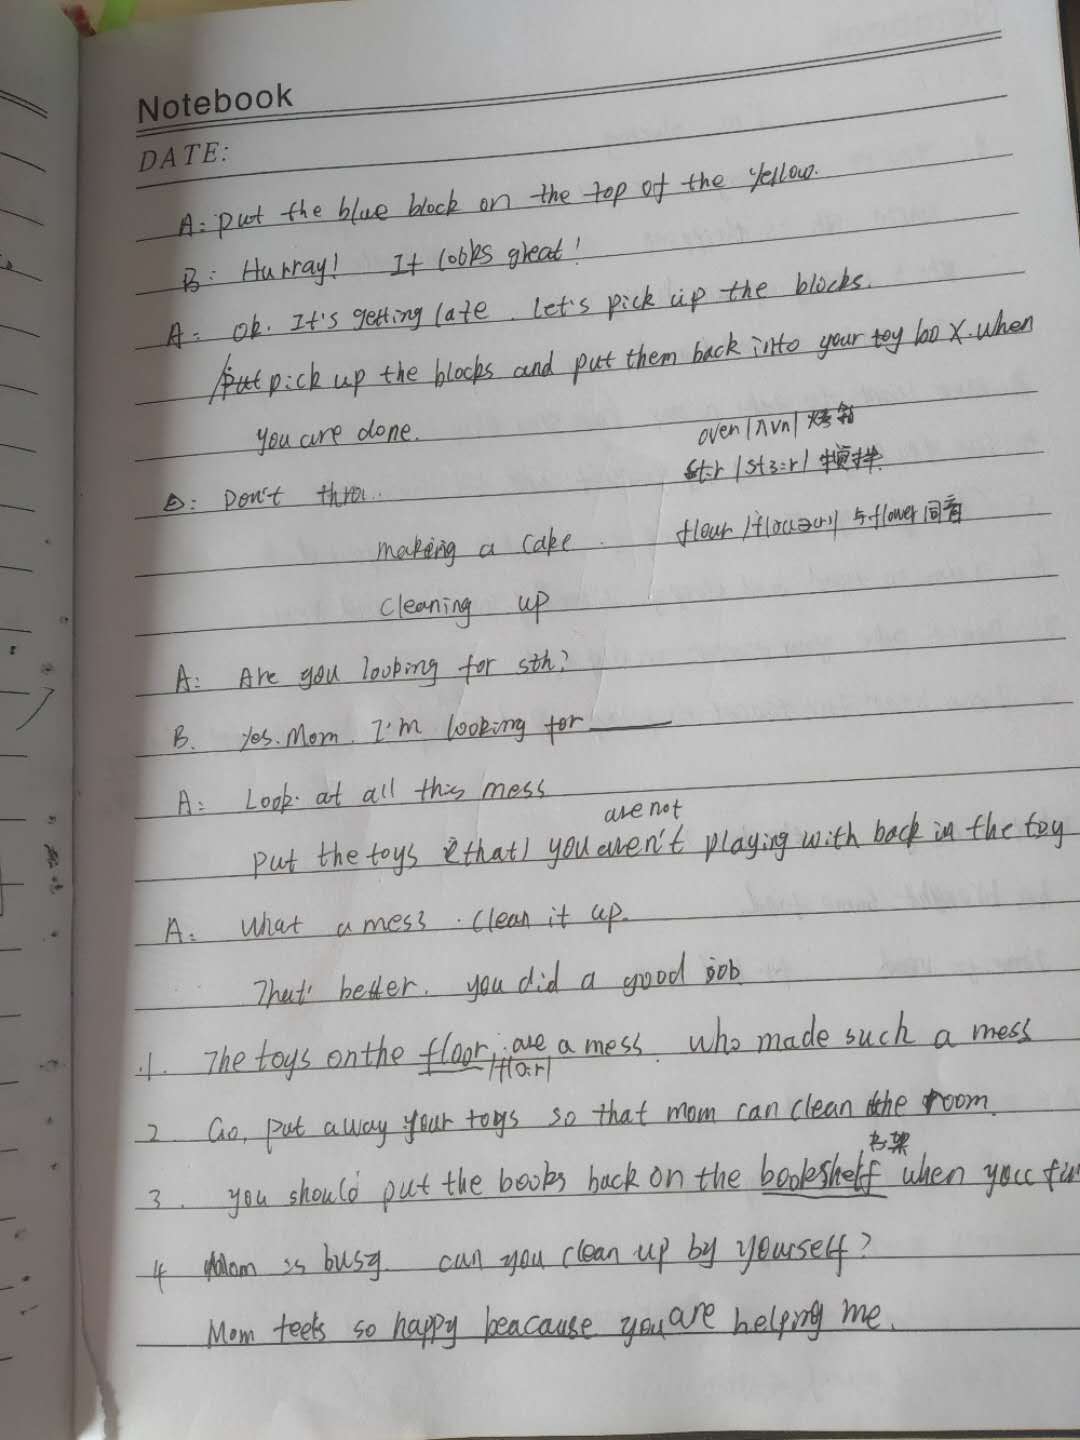 Notebook
DATE:
A: put the blue block on the top of the Yellow.
B: Hurray! It looks great!
A: Ok. It's getting late. let's pick up the blocks.
pick up the blocks and put them back into your toy box. when
you are done.
oven |ʌvn| 烤箱
stir |stɜ:r| 搅拌
Don't throu..
flour 与flower同音
making a cake
cleaning up
A: Are you looking for sth?
B. Yes. Mom. I'm looking for
A: Look at all this mess
are not
put the toys (that) you aren't playing with back in the toy
A: What a mess. Clean it up.
That' better. you did a good job.
1. The toys on the floor, are a mess. who made such a mess
2 Go, put away your toys so that mom can clean the room.
书架
3. you should put the books back on the bookshelf when you
4 Mom is busy. can you clean up by yourself?
Mom feels so happy beacause you are helping me.